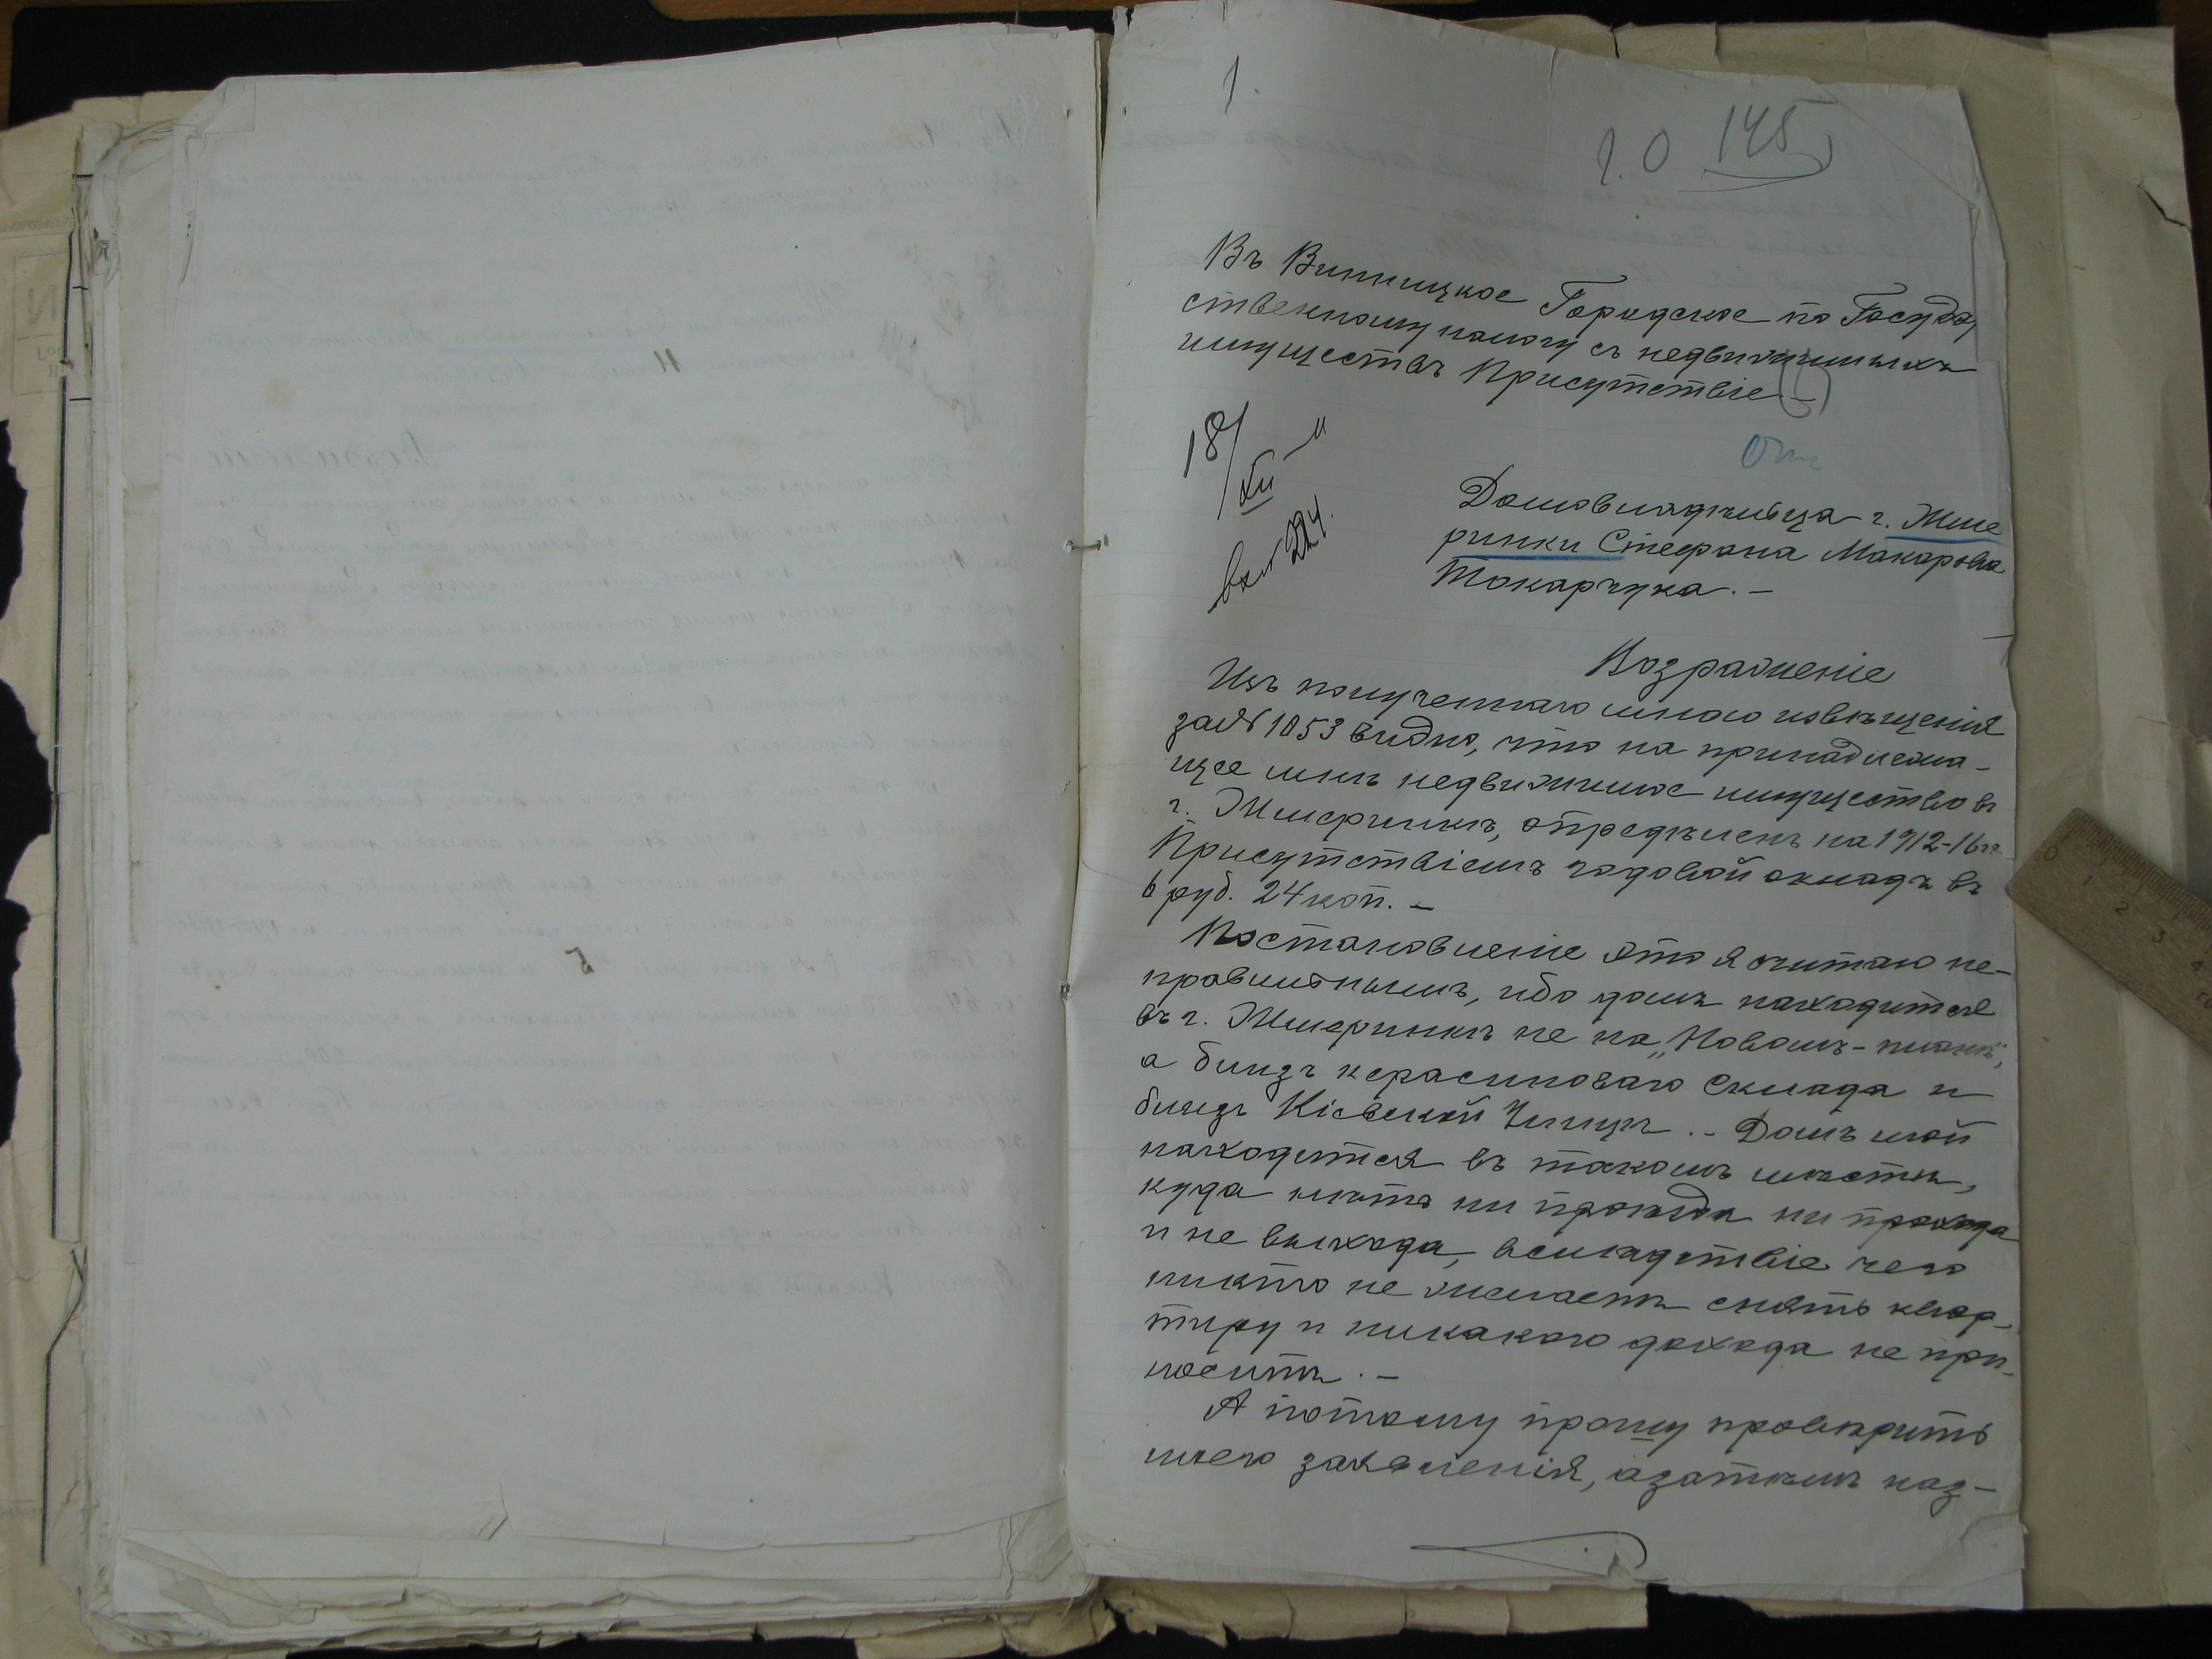 1.
145
Въ Винницкое Городское по Государ
ственному налогу съ недвижимыхъ
имуществъ Присутствіе
18/XII
вх 224.
Отъ
Домовладѣльца г. Жме
ринки Стефана Макарова
Токарчука. –
Возраженіе
Изъ полученнаго мною извѣщенія
за № 1053 видно, что на принадлежа-
щее мнѣ недвижимое имущество въ
г. Жмеринкѣ, опредѣленъ на 1912-16 г.
Присутствіемъ годовой окладъ въ
6 руб. 24 коп. –
Постановленіе это я считаю не-
правильнымъ, ибо домъ находится
въ г. Жмеринкѣ не на „Новомъ-планѣ",
а близъ керасиноваго склада и
близъ Кіевской Улицы. – Домъ мой
находится въ такомъ мѣстѣ,
куда нѣтъ ни проѣзда ни прохода
и не выхода, вслѣдствіе чего
никто не желаетъ снять квар-
тиру и никакого дохода не при-
носитъ. –
А потому прошу провѣрить
моего заявленія, а затѣмъ наз-